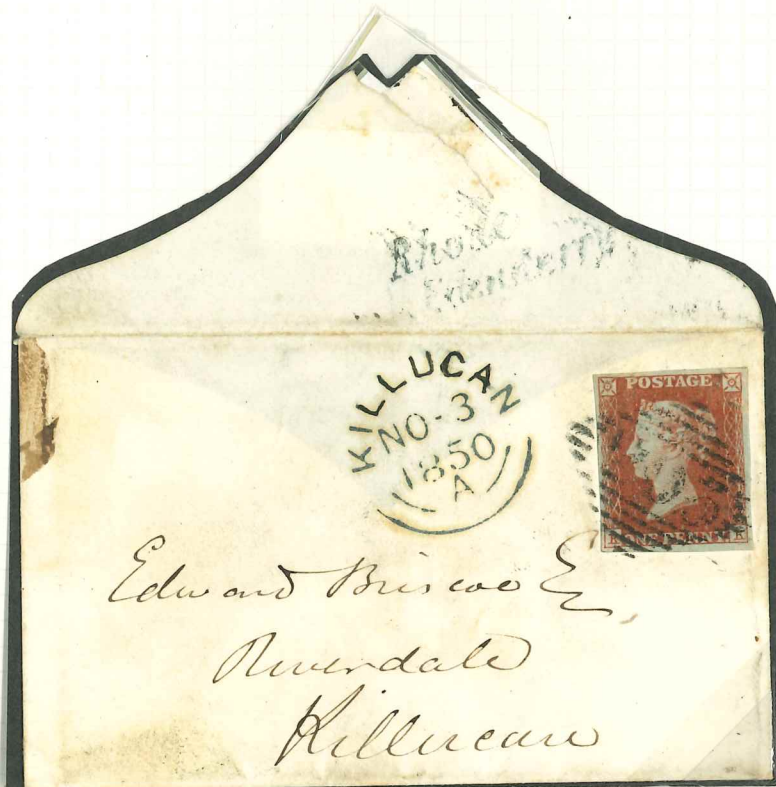 Rhode
Edenderry
KILLUCAN
NO-3
1850
A
POSTAGE
ONE PENNY
Edward Briscoe Esq,
Riverdale
Killucan